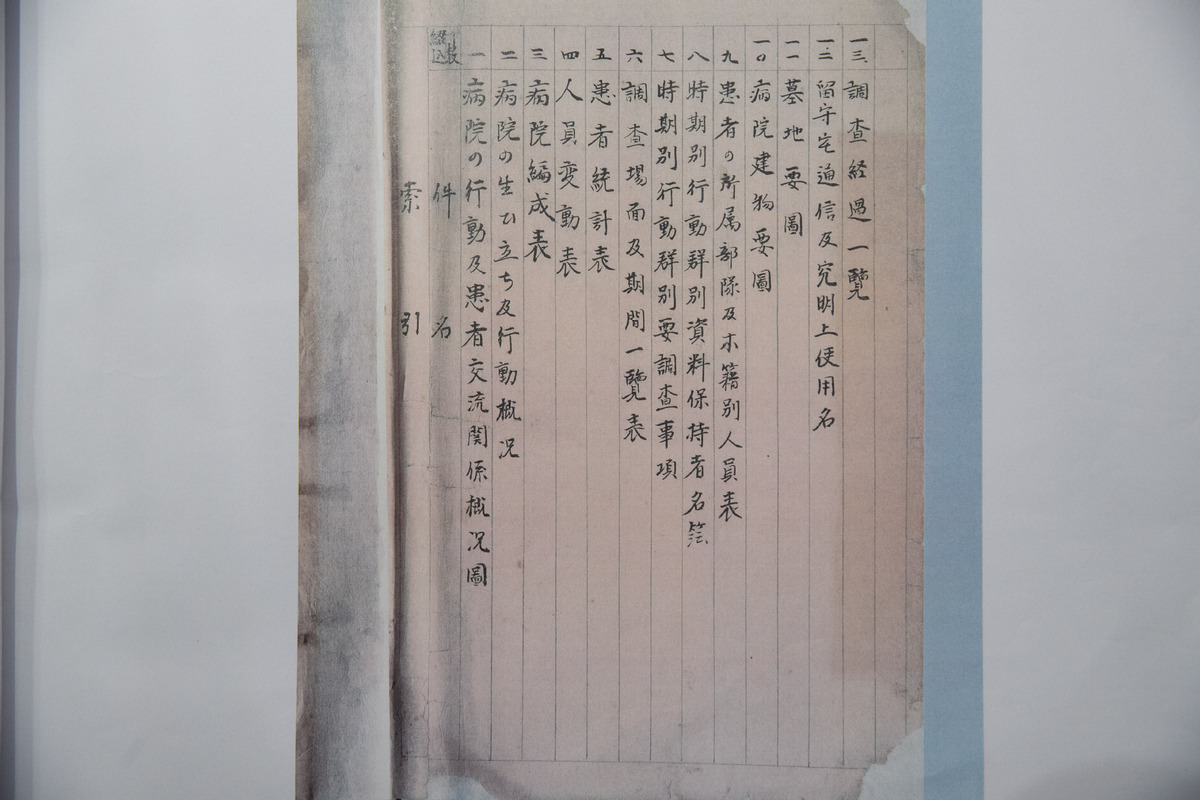 索引
件名
一 病院の行動及患者交流関係概况圖
二 病院の生ひ立ち及行動概况
三 病院編成表
四 人員変動表
五 患者統計表
六 調査場面及期間一覽表
七 時期別行動群別要調査事項
八 時期別行動群別資料保持者名簿
九 患者の所属部隊及本籍別人員表
一〇 病院建物要圖
一一 墓地要圖
一二 留守宅通信及究明上使用名
一三 調査経過一覽